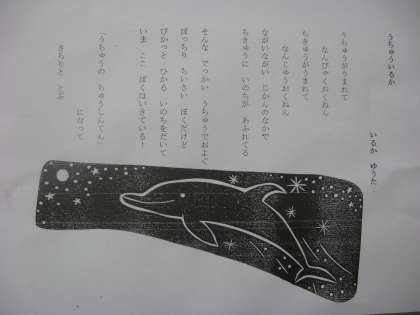 うちゅういるか
いるか ゆうた
うちゅうがうまれて
なんびゃくおくねん
ちきゅうがうまれて
なんじゅうおくねん
ながいながい じかんのなかで
ちきゅうに いのちが あふれてる
そんな でっかい うちゅうでおよぐ
ぽっちり ちいさい ぼくだけど
ぴかっと ひかる いのちをだいて
いま ここ ぼくはいきている!
「うちゅうの ちゅうしんてん」
になって
きらりと とぶ